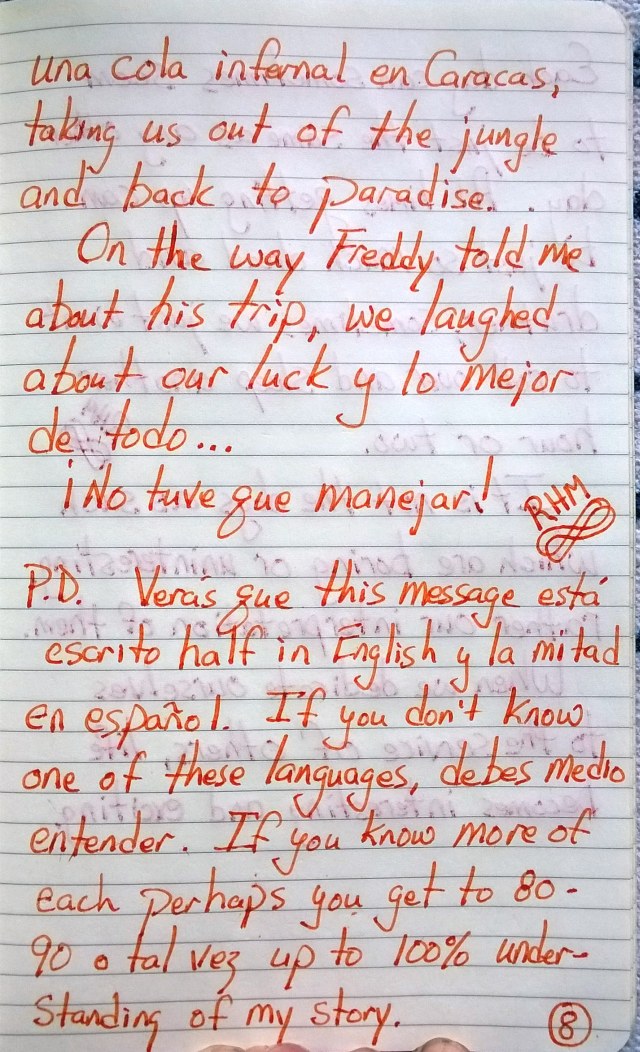 una cola infernal en Caracas,
taking us out of the jungle
and back to paradise...
On the way Freddy told me
about his trip, we laughed
about our luck y lo mejor
de todo...
¡No tuve que manejar!
RHM
P.D. Verás que this message está
escrito half in English y la mitad
en español. If you don't know
one of these languages, debes medio
entender. If you know more of
each perhaps you get to 80-
90 o tal vez up to 100% under-
standing of my story.
8